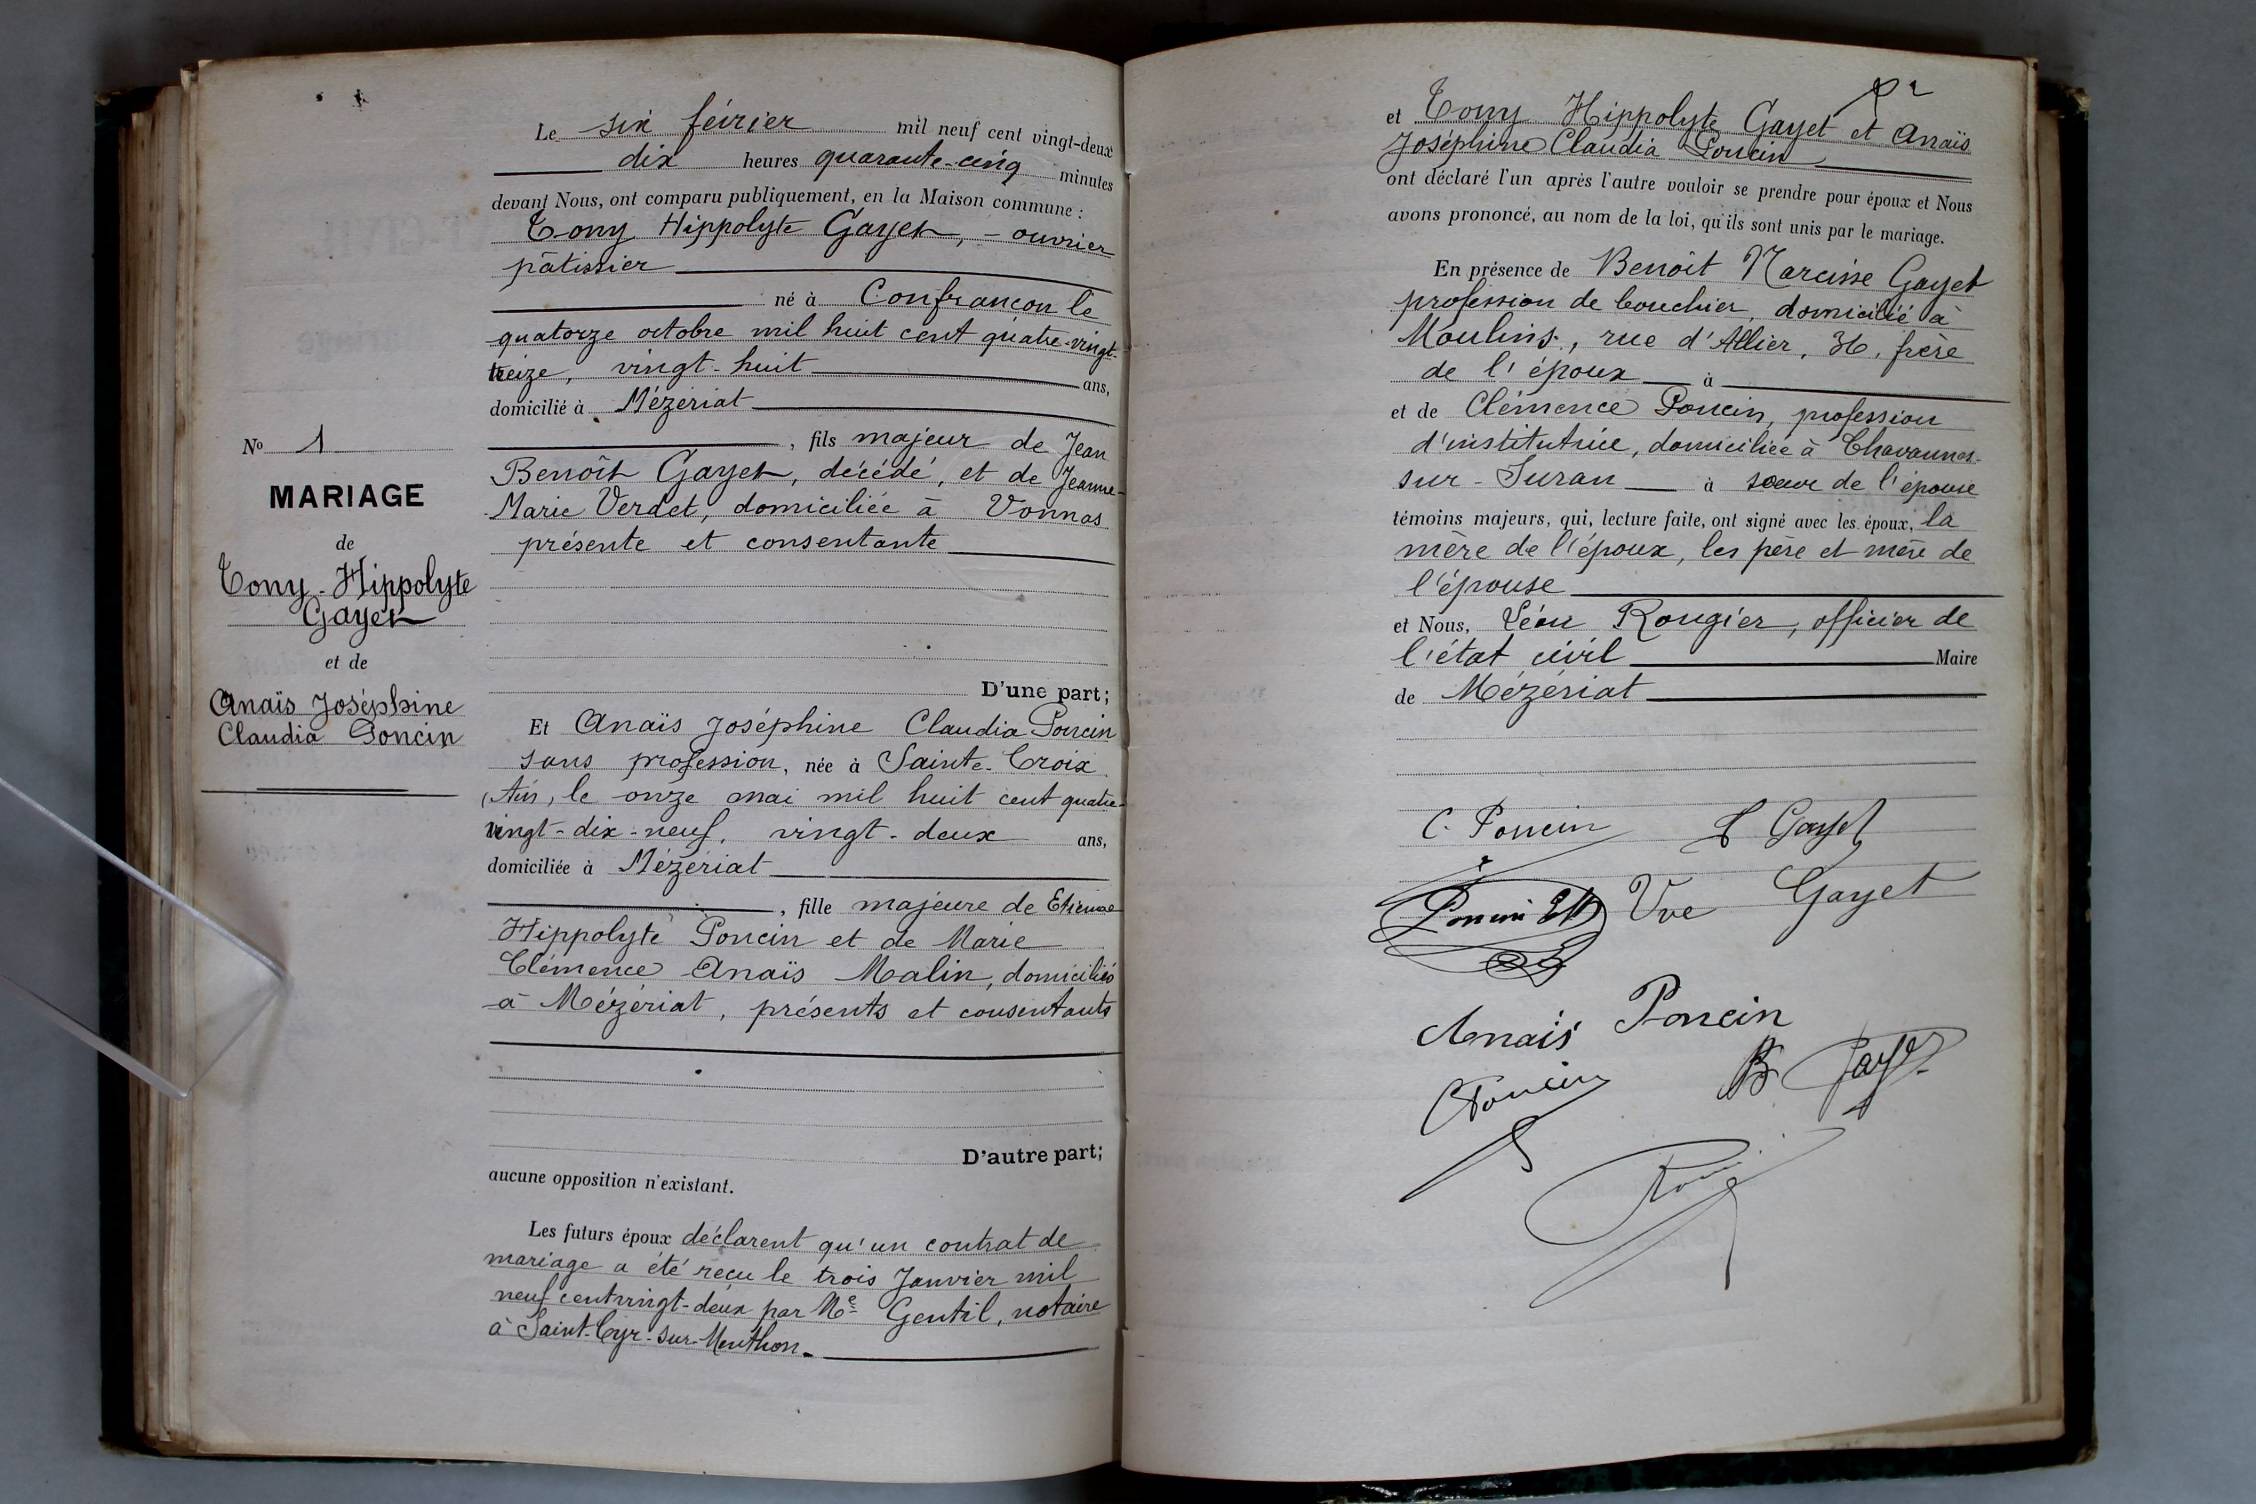 Le six février mil neuf cent vingt-deux
dix heures quarante-cinq minutes
devant Nous, ont comparu publiquement, en la Maison commune :
Tony Hippolyte Gayet, - ouvrier
pâtissier
né à Confrançon le
quatorze octobre mil huit cent quatre-vingt-
treize, vingt-huit ans,
domicilié à Mézériat
, fils majeur de Jean
Benoît Gayet, décédé, et de Jeanne-
Marie Verdet, domiciliée à Vonnas
présente et consentante
No 1
MARIAGE
de
Tony-Hippolyte
Gayet
et de
Anaïs Joséphine
Claudia Poncin
D'une part;
Et Anaïs Joséphine Claudia Poncin
sans profession, née à Sainte-Croix
(Ain, le onze mai mil huit cent quatre-
vingt-dix-neuf, vingt-deux ans,
domiciliée à Mézériat
, fille majeure de Etienne
Hippolyte Poncin et de Marie
Clémence Anaïs Malin, domiciliés
à Mézériat, présents et consentants
D'autre part;
aucune opposition n'existant.
Les futurs époux déclarent qu'un contrat de
mariage a été reçu le trois Janvier mil
neuf cent vingt-deux par Me Gentil, notaire
à Saint-Cyr-sur-Menthon.
et Tony Hippolyte Gayet et Anaïs
Joséphine Claudia Poncin
ont déclaré l'un après l'autre vouloir se prendre pour époux et Nous
avons prononcé, au nom de la loi, qu'ils sont unis par le mariage.
En présence de Benoît Narcisse Gayet
profession de boucher, domicilié à
Moulins, rue d'Allier, 36, frère
de l'époux à
et de Clémence Poncin, profession
d'institutrice, domiciliée à Chavannes-
sur-Suran à soeur de l'épouse
témoins majeurs, qui, lecture faite, ont signé avec les époux, la
mère de l'époux, les père et mère de
l'épouse
et Nous, Léon Rougier, officier de
l'état civil Maire
de Mézériat
C. Poncin
Gayet
Poncin
Vve Gayet
Anaïs Poncin
Poncin
B Gayet